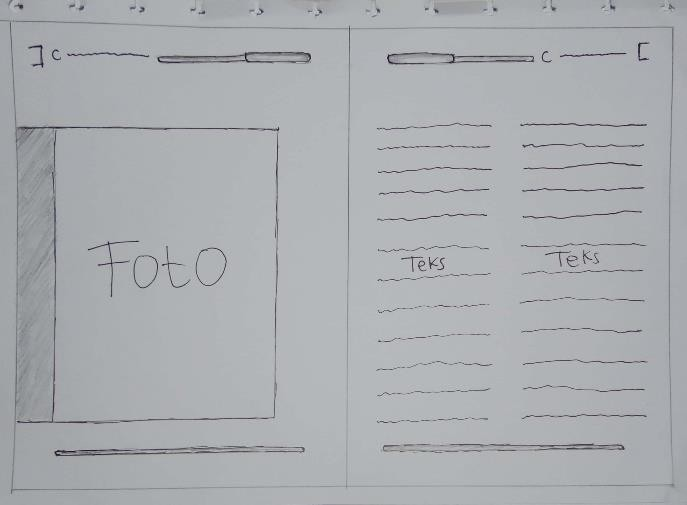 ] C
C [
Foto
Teks Teks